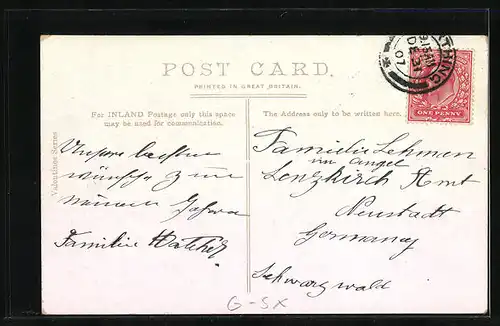 POST CARD.
PRINTED IN GREAT BRITAIN.
For INLAND Postage only this space
may be used for communication.
The Address only to be written here.
Valentines Series
Unsere besten
wünsche zum
neuen Jahre
Familie
Familie Lehmen
im Angel
Lenzkirch Amt
Neustadt
Germany
Schwarzwald
G-SX
RTHING
9.15 AM
DE 31
07
ONE PENNY